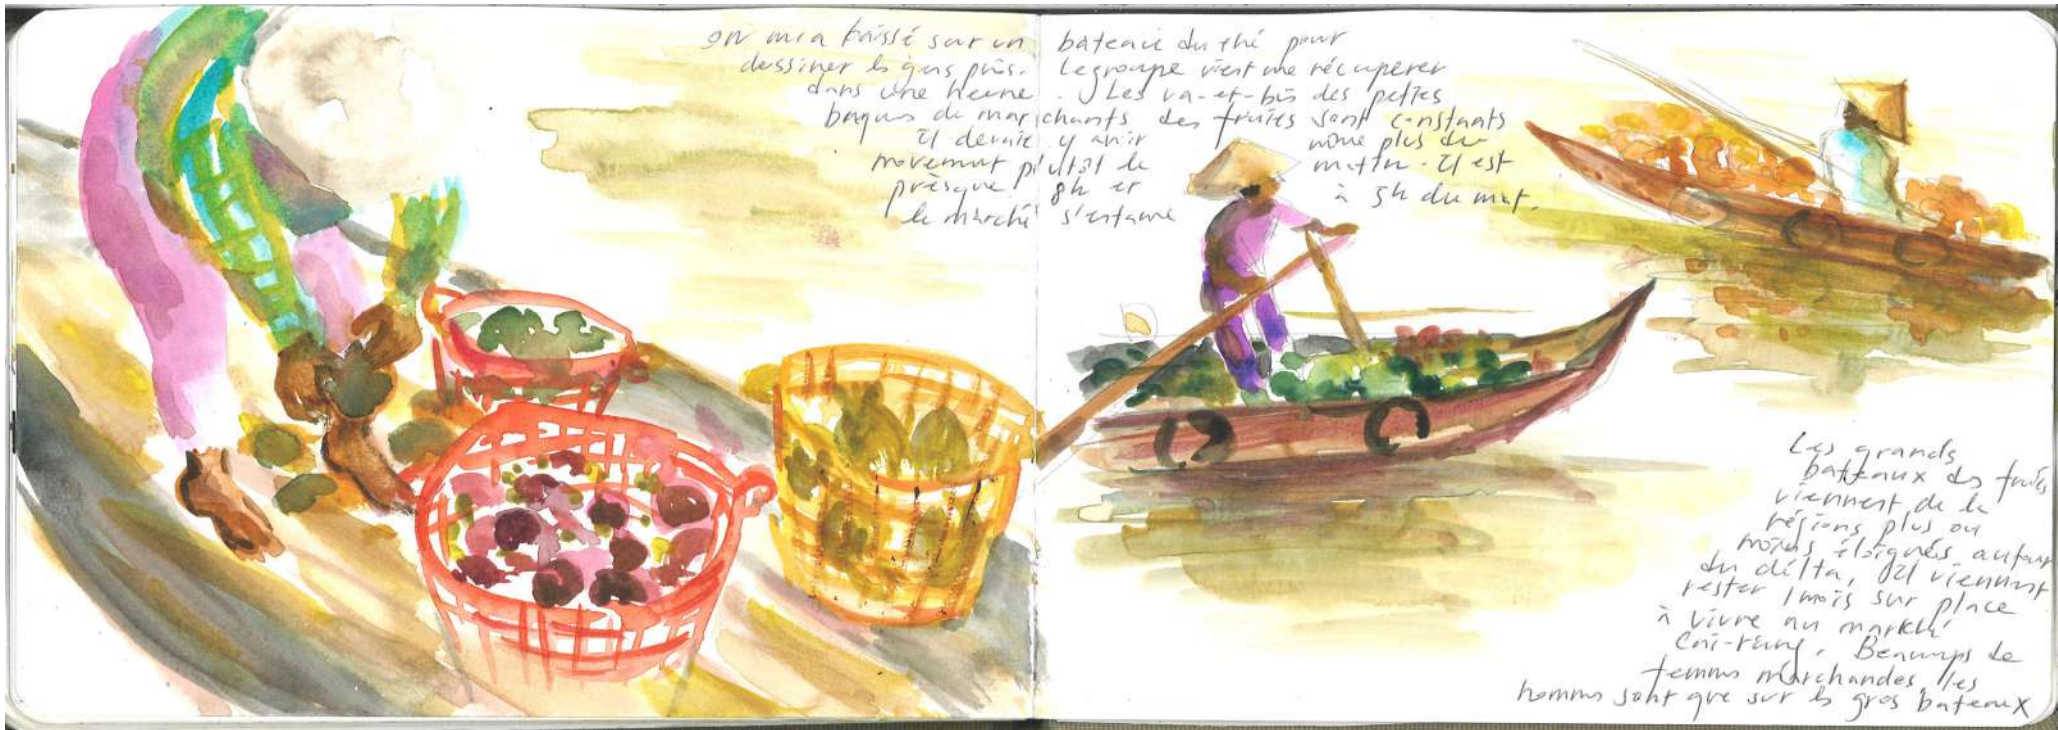 on m'a laissé sur un bateau du thé pour
dessiner les gens, puis. Le groupe vient me récuperer
dans une heure. Les va-et-bis des petites
baques de marchants des fruits sont constants
il devait y avoir même plus du
movement plutôt le mattin. Il est
prèsque 8h et à 5h du mat.
le marché s'entame
Les grands
bateaux des fruits
viennent de la
régions plus ou
moins éloignés autour
du délta, Ils viennent
rester 1 mois sur place
à vivre au marché
Cai-rang. Beaucoups de
femmes marchandes, les
hommes sont que sur les gros bateaux